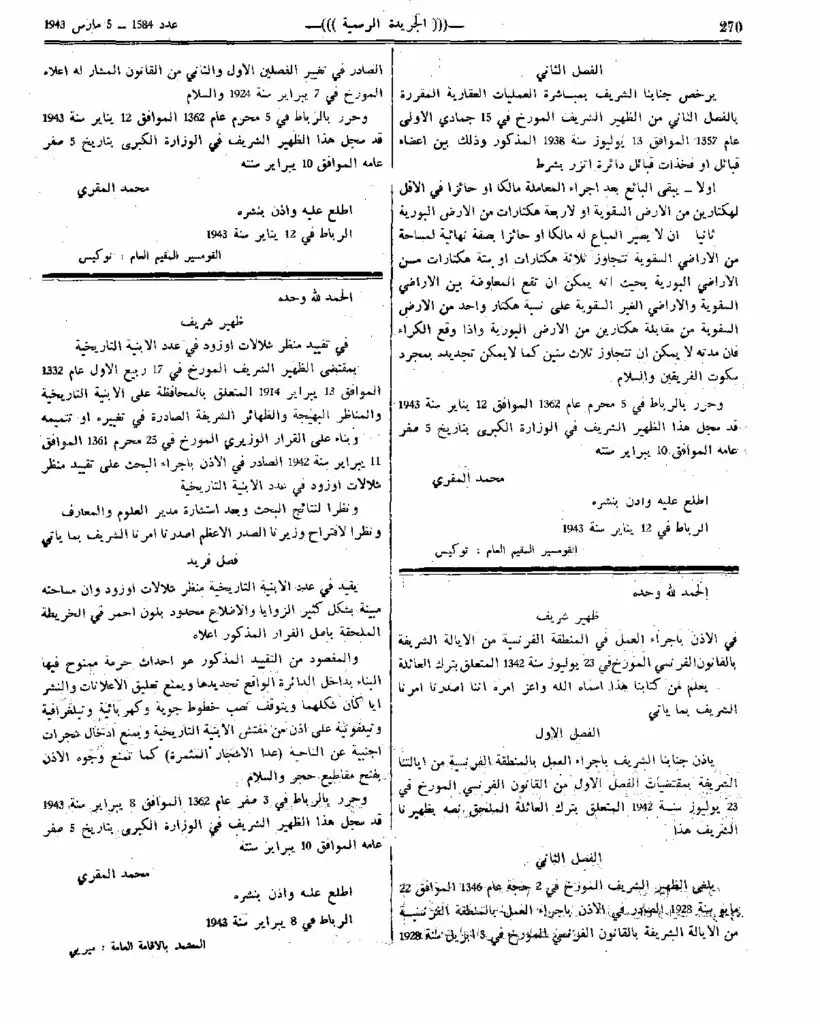 270
—((( الجريدة الرسمية )))—
عدد 1584 ـ 5 مارس 1943
الفصل الثاني
يرخص جنابنا الشريف بمباشرة العمليات العقارية المقررة
بالفصل الثاني من الظهير الشريف المورخ في 15 جمادي الاولى
عام 1357 الموافق 13 يوليوز سنة 1938 المذكور وذلك بين اعضاء
قبائل او فخذات قبائل دائرة اتزر بشرط
اولا ـ يبقى البائع بعد اجراء المعاملة مالكا او حائزا في الاقل
لهكتارين من الارض السقوية او لاربعة هكتارات من الارض البورية
ثانيا ان لا يصير المباع له مالكا او حائزا بصفة نهائية لمساحة
من الاراضي السقوية تتجاوز ثلاثة هكتارات او ستة هكتارات مسن
الاراضي البورية بحيث انه يمكن ان تقع المعاوضة بين الاراضي
السقوية والاراضي الغير السقوية على نسبة هكتار واحد من الارض
السقوية من مقابلة هكتارين من الارض البورية واذا وقع الكراء
فان مدته لا يمكن ان تتجاوز ثلاث سنين كما لا يمكن تجديده بمجرد
سكوت الفريقين والسلام
وحرر بالرباط في 5 محرم عام 1362 الموافق 12 يناير سنة 1943
قد سجل هذا الظهير الشريف في الوزارة الكبرى بتاريخ 5 صفر
عامه الموافق 10 يبراير سنته
محمد المقري
اطلع عليه واذن بنشره
الرباط في 12 يناير سنة 1943
القوميسير المقيم العام : نوكيس
الحمد لله وحده
ظهير شريف
في الاذن باجراء العمل في المنطقة الفرنسية من الايالة الشريفة
بالقانون الفرنسي المورخ في 23 يوليوز سنة 1342 المتعلق بترك العائلة
يعلم من كتابنا هذا اسماه الله واعز امره اننا اصدرنا امرنا
الشريف بما ياتي
الفصل الاول
ياذن جنابنا الشريف باجراء العمل بالمنطقة الفرنسية من ايالتنا
الشريفة بمقتضيات الفصل الاول من القانون الفرنسي المورخ في
23 يوليوز سنة 1942 المتعلق بترك العائلة الملحق نصه بظهيرنا
الشريف هذا
الفصل الثاني
يلغى الظهير الشريف المورخ في 2 حجة عام 1346 الموافق 22
مايو سنة 1928 الصادر في الاذن باجراء العمل بالمنطقة الفرنسية
من الايالة الشريفة بالقانون الفرنسي المورخ في 3 ابريل سنة 1928
الصادر في تغيير الفصلين الاول والثاني من القانون المشار له اعلاه
المورخ في 7 يبراير سنة 1924 والسلام
وحرر بالرباط في 5 محرم عام 1362 الموافق 12 يناير سنة 1943
قد سجل هذا الظهير الشريف في الوزارة الكبرى بتاريخ 5 صفر
عامه الموافق 10 يبراير سنته
محمد المقري
اطلع عليه واذن بنشره
الرباط في 12 يناير سنة 1943
القوميسير المقيم العام : نوكيس
الحمد لله وحده
ظهير شريف
في تقييد منظر شلالات اوزود في عدد الابنية التاريخية
بمقتضى الظهير الشريف المورخ في 17 ربيع الاول عام 1332
الموافق 13 يبراير 1914 المتعلق بالمحافظة على الابنية التاريخية
والمناظر البهيجة والظهائر الشريفة الصادرة في تغييره او تتميمه
وبناء على القرار الوزيري المورخ في 25 محرم 1361 الموافق
11 يبراير سنة 1942 الصادر في الاذن باجراء البحث على تقييد منظر
شلالات اوزود في عدد الابنية التاريخية
ونظرا لنتائج البحث وبعد استشارة مدير العلوم والمعارف
ونظرا لاقتراح وزيرنا الصدر الاعظم اصدرنا امرنا الشريف بما ياتي
فصل فريد
يقيد في عدد الابنية التاريخية منظر شلالات اوزود وان مساحته
مبينة بشكل كثير الزوايا والاضلاع محدود بلون احمر في الخريطة
الملحقة باصل القرار المذكور اعلاه
والمقصود من التقييد المذكور هو احداث حرمة ممنوح فيها
البناء بداخل الدائرة الواقع تحديدها ويمنع تعليق الاعلانات والنشر
ايا كان شكلهما ويتوقف نصب خطوط جوية وكهربائية وتيلغرافية
وتيلفونية على اذن من مفتش الابنية التاريخية ويمنع ادخال شجرات
اجنبية عن الناحية (عدا الاشجار المثمرة) كما تمنع وجوه الاذن
بفتح مقاطيع حجر والسلام
وحرر بالرباط في 3 صفر عام 1362 الموافق 8 يبراير سنة 1943
قد سجل هذا الظهير الشريف في الوزارة الكبرى بتاريخ 5 صفر
عامه الموافق 10 يبراير سنته
محمد المقري
اطلع عليه واذن بنشره
الرباط في 8 يبراير سنة 1943
المعتمد بالاقامة العامة : ميريي